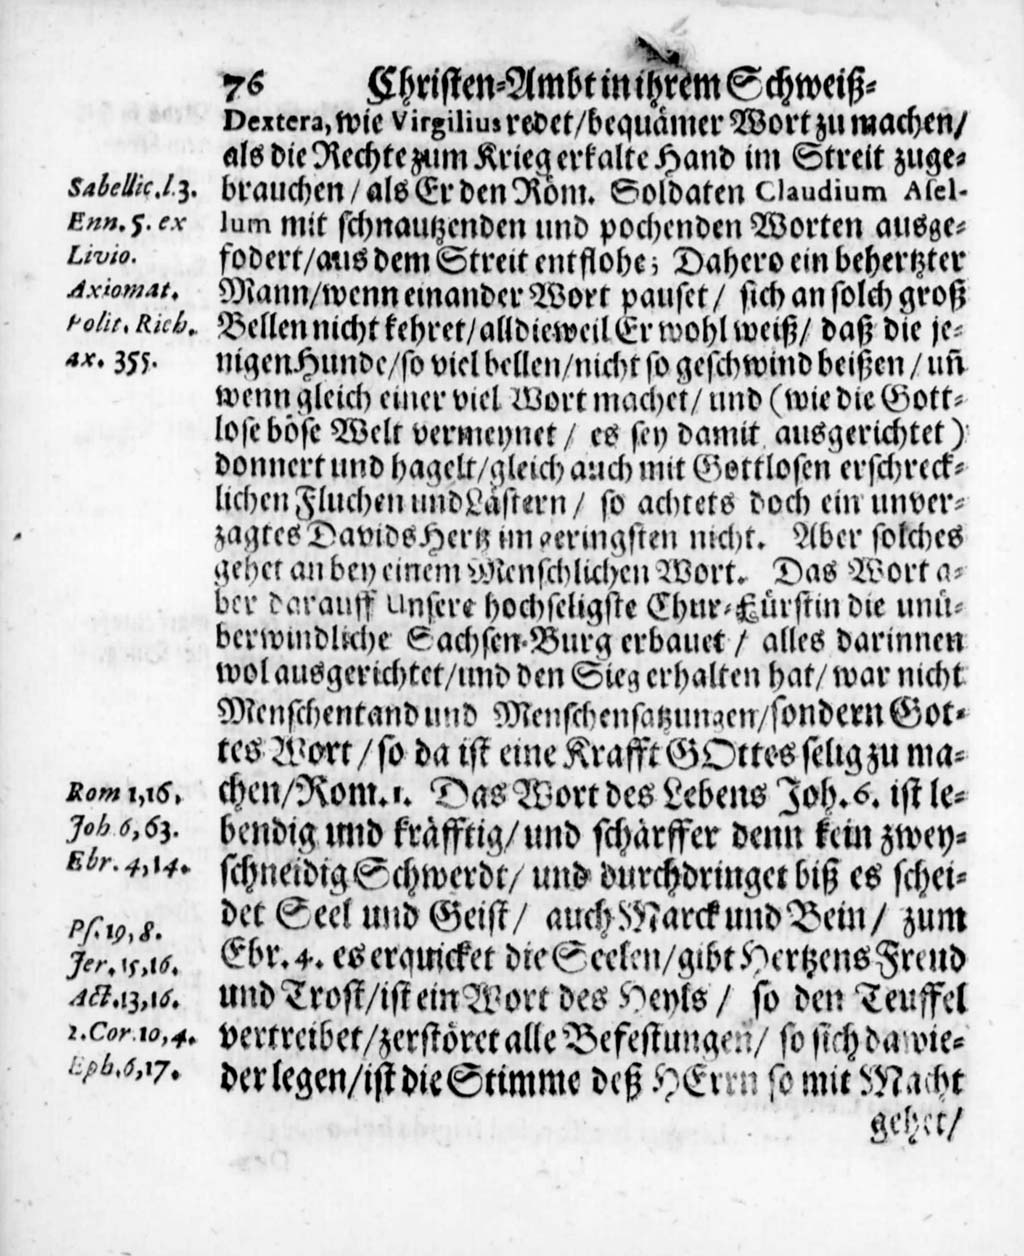 76 Christen-Ambt in ihrem Schweiß-
Dextera, wie Virgilius redet/bequämer Wort zu machen/
als die Rechte zum Krieg erkalte Hand im Streit zuge-
Sabellic.l.3. brauchen / als Er den Röm. Soldaten Claudium Asel-
Enn. 5. ex lum mit schnautzenden und pochenden Worten ausge-
Livio. fodert/aus dem Streit entflohe; Dahero ein behertzter
Axiomat. Mann/wenn einander Wort pauset / sich an solch groß
Polit. Rich. Bellen nicht kehret/alldieweil Er wohl weiß/ daß die je-
ax. 355. nigen Hunde/so viel bellen/nicht so geschwind beißen / uñ
wenn gleich einer viel Wort machet/ und (wie die Gott-
lose böse Welt vermeynet / es sey damit ausgerichtet)
donnert und hagelt/gleich auch mit Gottlosen erschreck-
lichen Fluchen und Lästern / so achtets doch ein unver-
zagtes Davids Hertz im geringsten nicht. Aber solches
gehet an bey einem Menschlichen Wort. Das Wort a-
ber darauff unsere hochseligste Chur-Fürstin die unü-
berwindliche Sachsen-Burg erbauet / alles darinnen
wol ausgerichtet/und den Sieg erhalten hat/ war nicht
Menschentand und Menschensatzungen/sondern Got-
tes Wort / so da ist eine Krafft GOttes selig zu ma-
Rom 1,16. chen/Rom.1. Das Wort des Lebens Joh.6. ist le-
Joh.6,63. bendig und kräfftig/ und schärffer denn kein zwey-
Ebr. 4,14. schneidig Schwerdt/ und durchdringet biß es schei-
det Seel und Geist / auch Marck und Bein / zum
Ps.19,8. Ebr. 4. es erquicket die Seelen/gibt Hertzens Freud
Jer.15,16.
Act.13,16. und Trost/ist ein Wort des Heyls / so den Teuffel
2.Cor.10,4. vertreibet/zerstöret alle Befestungen / so sich dawie-
Eph.6,17. der legen/ist die Stimme deß HErrn so mit Macht
gehet/